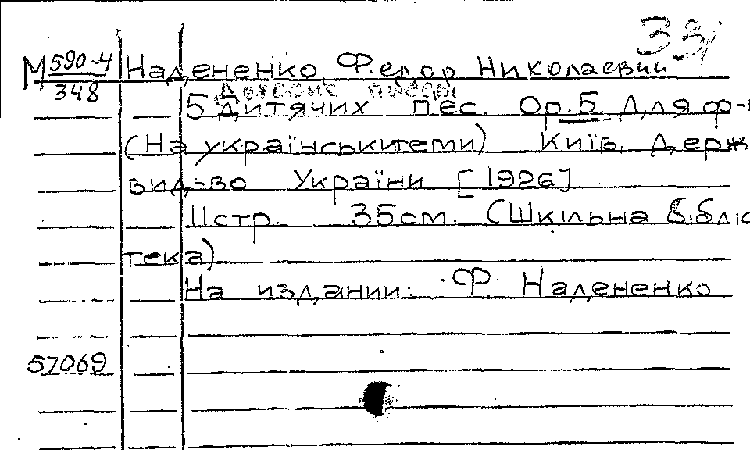 33
М 590-4 Надененко, Федор Николаевич
348
Детские пьесы
5 Дитячих пєс. Ор. 5. Для ф-
(На українськ. теми) Київ, Держ
вид-во України [1926]
11 стр. 35 см. (Шкільна бібліо
тека)
На издании: Ф. Надененко
57069